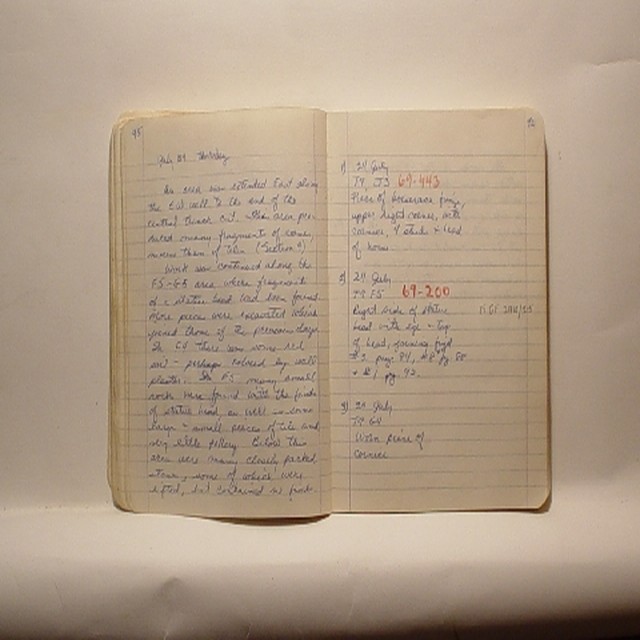 95
July 24 Thursday
An area was extended East along
the E-W wall to the end of the
central trench cut. This area pro-
duced many fragments of cornice,
more than of tile (Section 9)
Work was continued along the
F5-G5 area where fragments
of a statue head had been found.
More pieces were excavated which
joined those of the previous days.
In G4 there was some red
soil - perhaps colored by wall
plaster. In F5 many small
rocks were found with the finds
of statue head, as well as some
large + small pieces of tile and
very little pottery. Below this
area were many closely packed
stones, some of which were
lifted, but contained no finds.
1) 24 July
T9, J3 69-443
Piece of horserace frieze,
upper right corner, with
cornice, + stick + head
of horse
2) 24 July
T9 F5 69-200
Right side of statue
head with eye + top
of head, joining find
#2 page 84, #8 pg 88
+ #1 pg. 92.
3) 24 July
T9 G4
Worn piece of
cornice